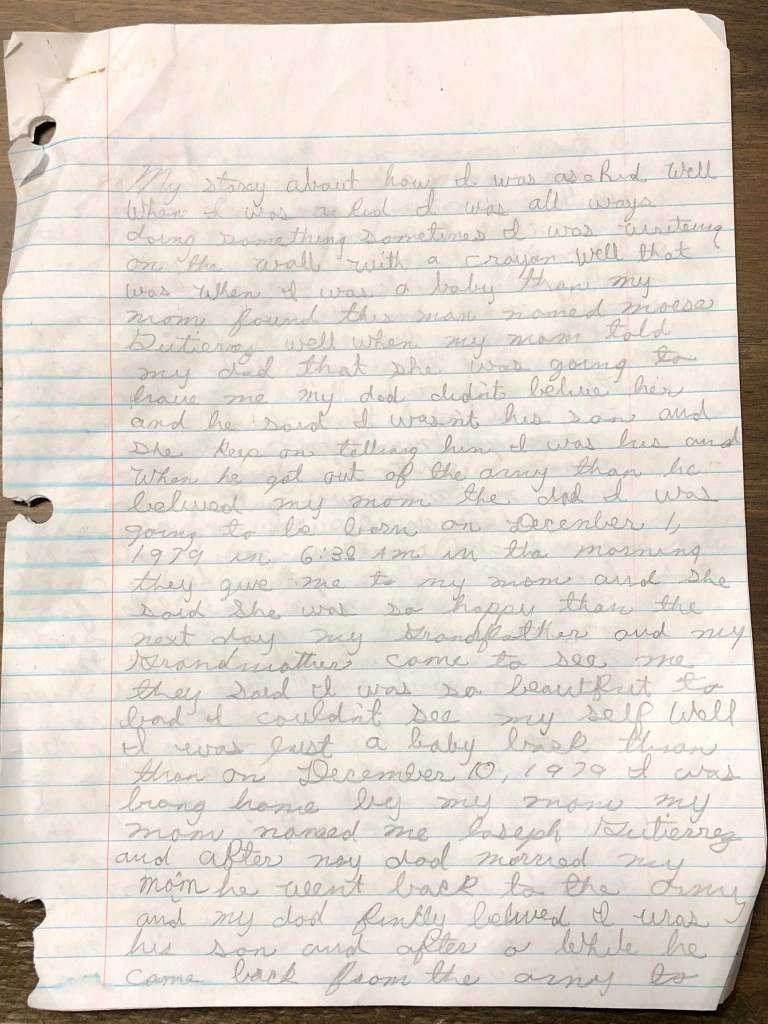 My storey about how I was as a kid Well
When I was a kid I was all ways
doing something sometines I was writeing
on the wall with a crayon Well that
was when I was a baby than my
mom found this man named
Gutierrez well when my mom told
my dad that she was going to
have me my dad didn't belive her
and he said I wasn't his son and
she keep on telling him I was his and
When he got out of the army than he
belived my mom the dad I was
going to be born on December 1,
1979 in 6:38 Am in the morning
they give me to my mom and she
said She was so happy than the
next day my Grandfather and my
Grandmother came to see me
they said I was so to
bad I couldn't see my self Well
I was just a baby back than
than on December 10, 1979 I was
brong home by my mom my
mom named me Joseph Gutierrez
and after my dad married my
mom he went back to the army
and my dad finlly belived I was
his son and after a While he
came back from the army to